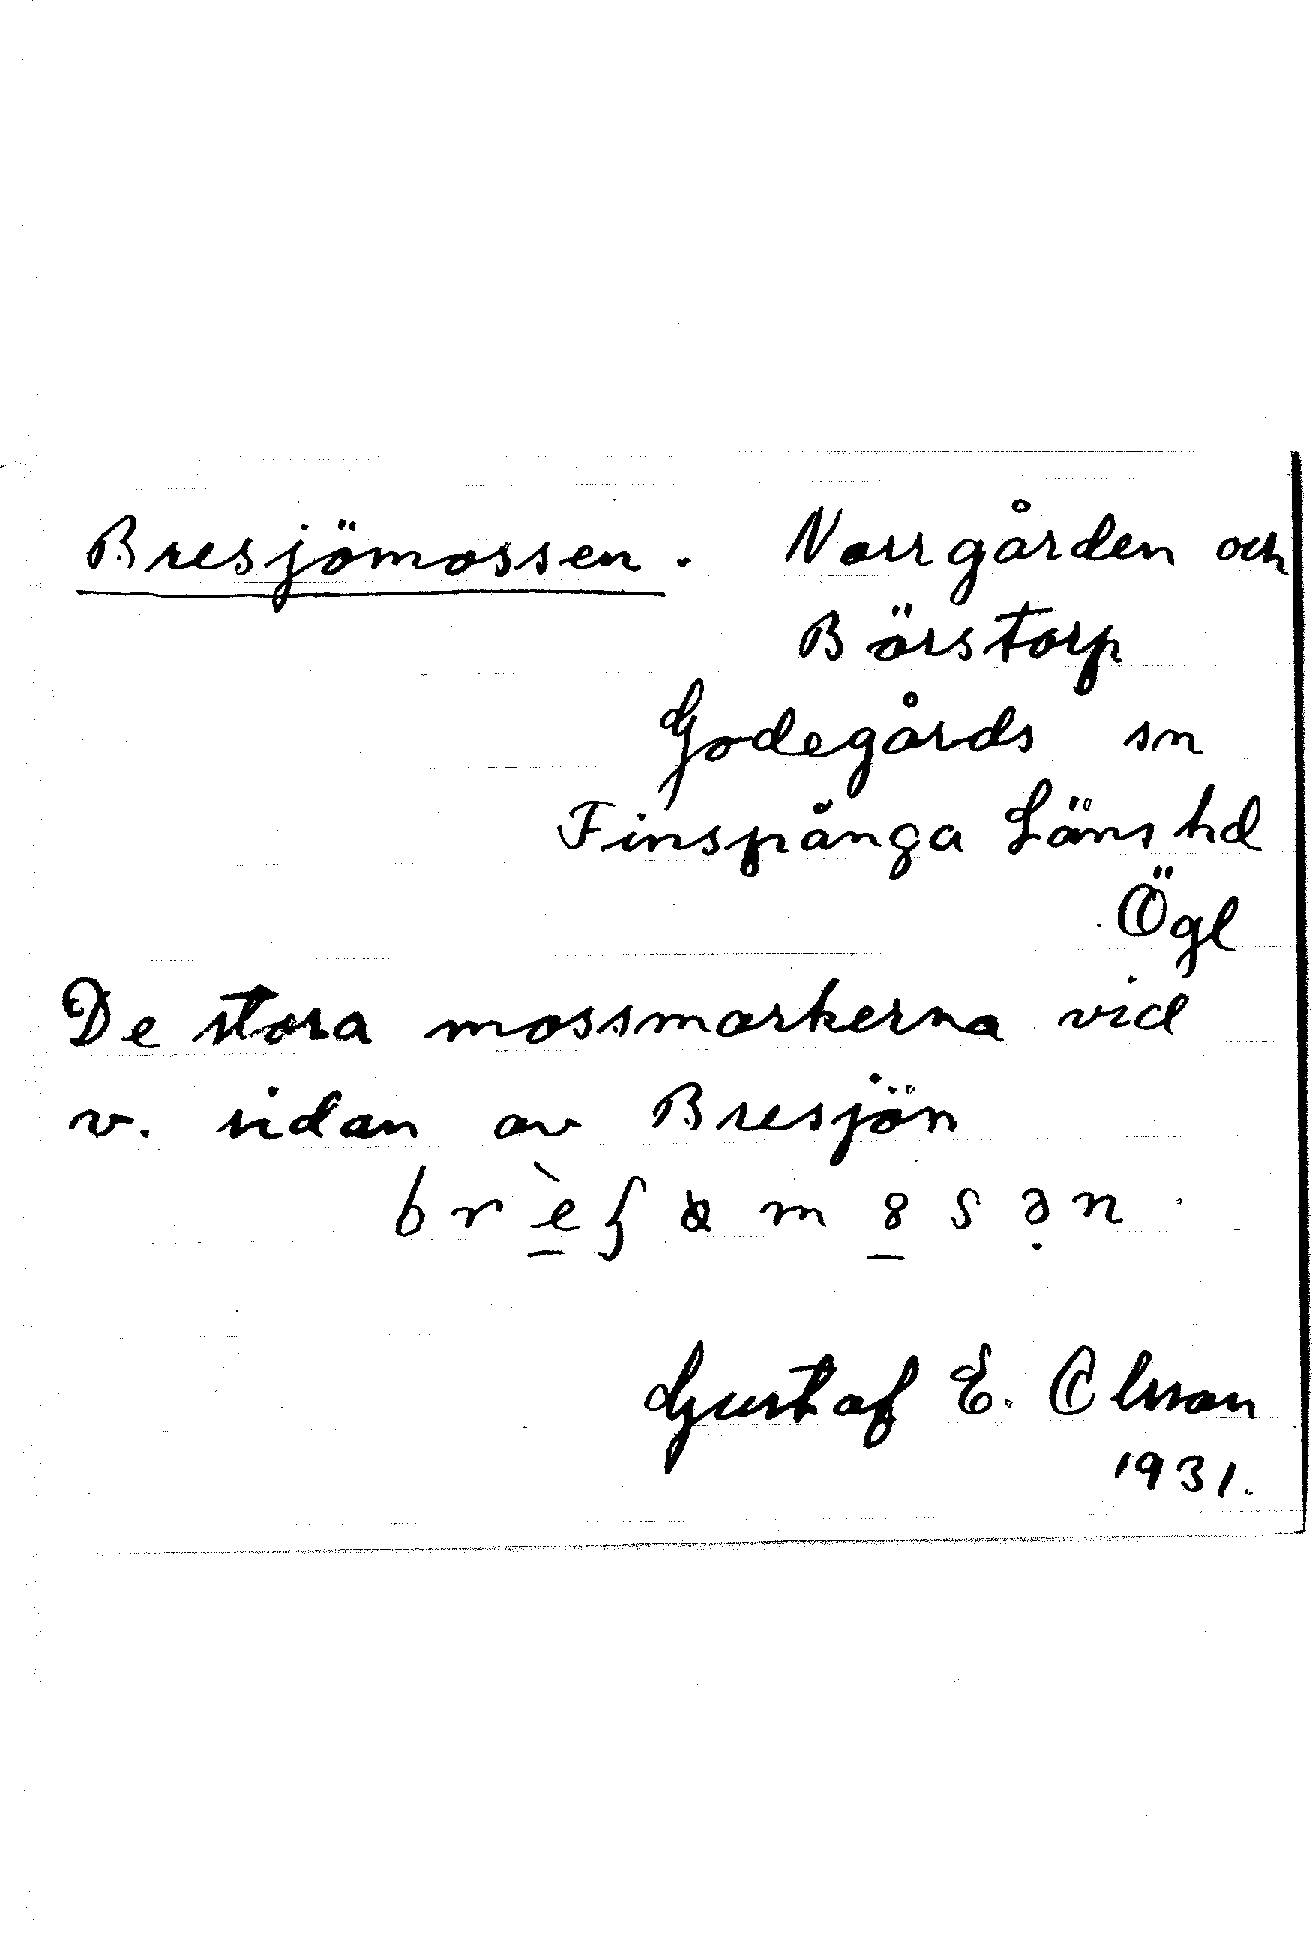 Bresjömossen. Norrgården och
Börstorp
Godegårds sn
Finspånga Läns hd
Ögl
De stora mossmarkerna vid
v. sidan av Bresjön
Gustaf E. Olsson
1931.